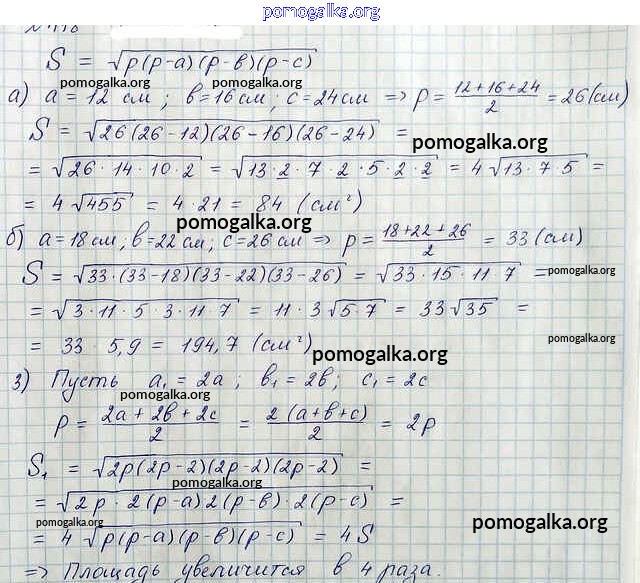 pomogalka.org
S = √p(p-a)(p-в)(p-c)
pomogalka.org pomogalka.org
а) a = 12 см ; в = 16 см ; c = 24 см => p = (12+16+24)/2 = 26 (см)
S = √26(26-12)(26-16)(26-24) =
pomogalka.org
= √26·14·10·2 = √13·2·7·2·5·2·2 = 4√13·7·5 =
= 4√455 = 4·21 = 84 (см²)
pomogalka.org
б) a = 18 см, в = 22 см; c = 26 см => p = (18+22+26)/2 = 33 (см)
S = √33·(33-18)(33-22)(33-26) = √33·15·11·7 =
pomogalka.org
= √3·11·5·3·11·7 = 11·3√5·7 = 33√35 =
pomogalka.org
= 33·5,9 = 194,7 (см²)
pomogalka.org
3) Пусть a₁ = 2a ; в₁ = 2в ; c₁ = 2c
pomogalka.org
P = (2a + 2в + 2c)/2 = 2(a+в+c)/2 = 2p
S₁ = √2p(2p-2)(2p-2)(2p-2) =
pomogalka.org
= √2p·2(p-a)2(p-в)·2(p-c) =
pomogalka.org pomogalka.org
= 4√p(p-a)(p-в)(p-c) = 4S
=> Площадь увеличится в 4 раза.